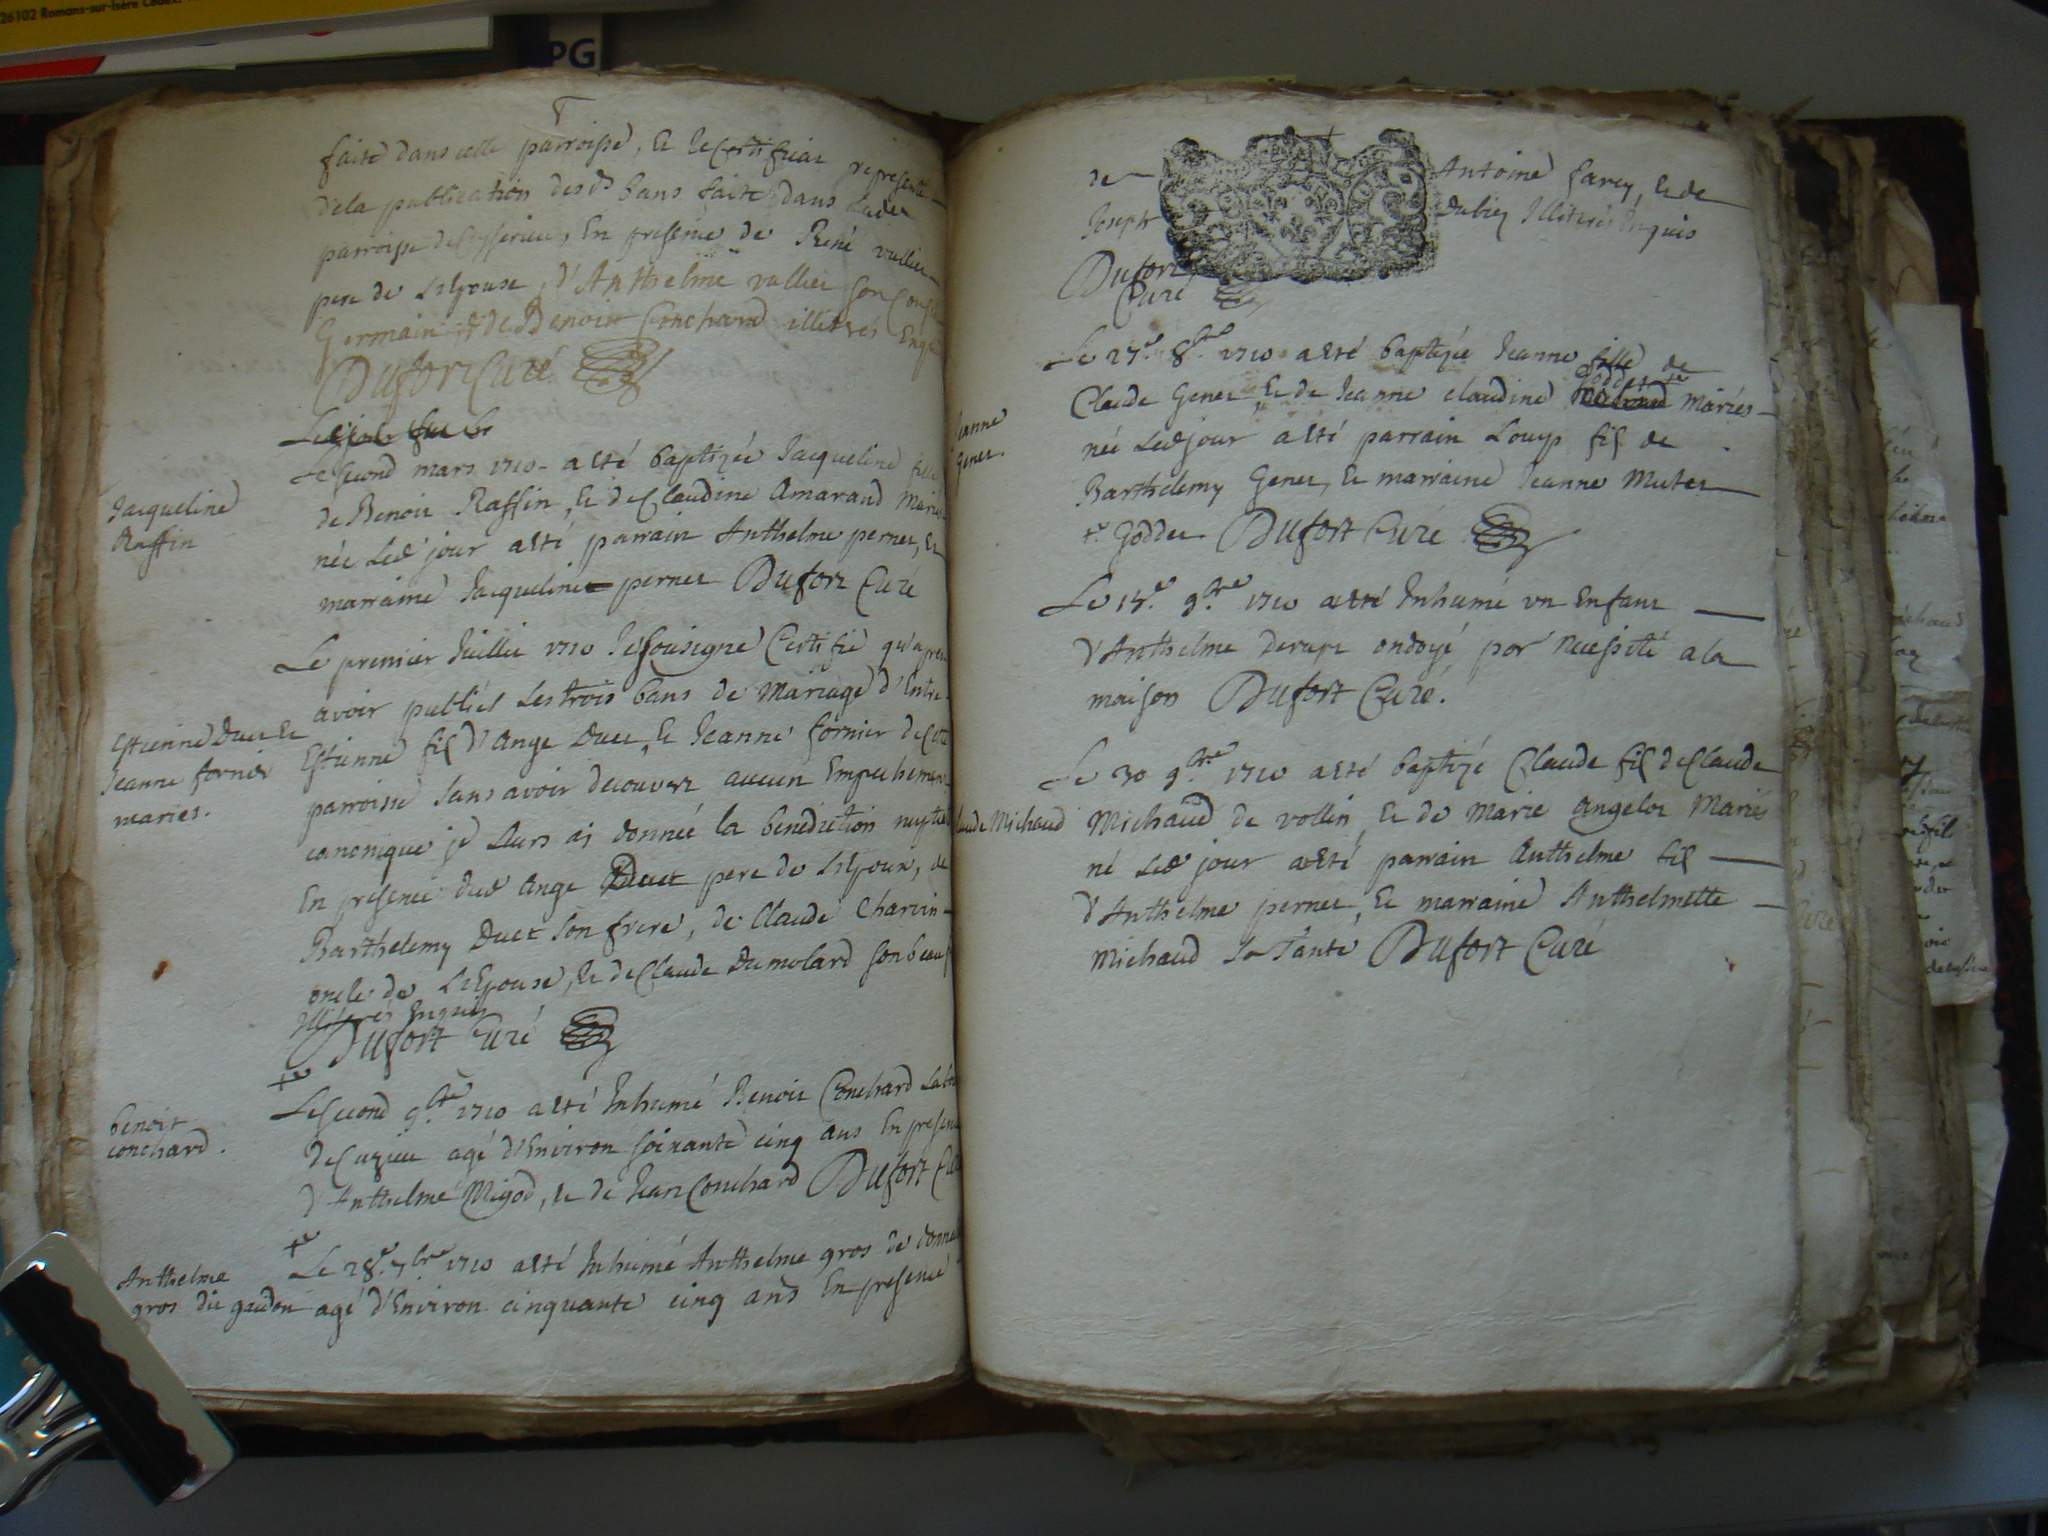 26102 Romans-sur-Isère Cedex
PG
faite dans cette parroisse, et le Certificat represente
de la publication desds bans faite dans lade
parroisse de Ceyserieu, En presence de René vullier
pere de L'Epouse, d'Anthelme vullier son Cous
Germain et de Benoit Conchard illitrés Enq
Dufort Curé
Le second mars 1710 a esté baptizée Jacqueline fille
de Benoit Raffin, et de Claudine Amarand Mariés
née Led jour a esté parrain Anthelme pernet, et
marraine Jacqueline pernet Dufort Curé
Jacqueline
Raffin
Le premier Juillet 1710 Je sousigne Certifie qu'apres
avoir publiés Les trois bans de Mariage d'Entre
Estienne fils d'Ange Duet, et Jeanne fornier de cette
parroisse sans avoir decouvert aucun Empechement
canonique je Leurs ai donnée la benediction nuptia
En presence dud Ange Duet pere de L'Epoux, de
Barthelemy Duet son frere, de Claude Charvin
oncle de L'Epouse, et de Claude Dumolard son beauf
Illitrés Enquis
Dufort Curé
Estienne Duet Et
Jeanne fornier
mariés.
Le second 9bre 1710 a esté Inhumé Benoit Conchard Labo
de Cuzieu agé d'Environ soixante cinq ans En presence
d'Anthelme Migod, et de Jean Conchard Dufort Cu
benoit
conchard.
Le 28e 7bre 1710 a esté Inhumé Anthelme gros de
agé d'Environ cinquante cinq ans En presence
Anthelme
gros dit gaudon
de Antoine farcy, et de
Joseph Dubiez Illiterés Enquis
Dufort
Curé
Le 27e 8bre 1710 a esté baptizée Jeanne fille de
Claude Genet et de Jeanne claudine Goddet mariés
née Led jour a esté parrain Loup fils de
Barthelemy Genet, et marraine Jeanne Mutet
Goddet Dufort Curé
Jeanne
Genet.
Le 15e 9bre 1710 a esté Inhumé un Enfant
d'Anthelme ondoyé por necessité a la
maison Dufort Curé.
Le 30 9bre 1710 a esté baptizé Claude fils de Claude
Michaud de vollin, et de Marie Angelot Mariés
né Led jour a esté parrain Anthelme fils
d'Anthelme pernet, et marraine Anthelmette
Michaud sa Tante Dufort Curé
laude Michaud